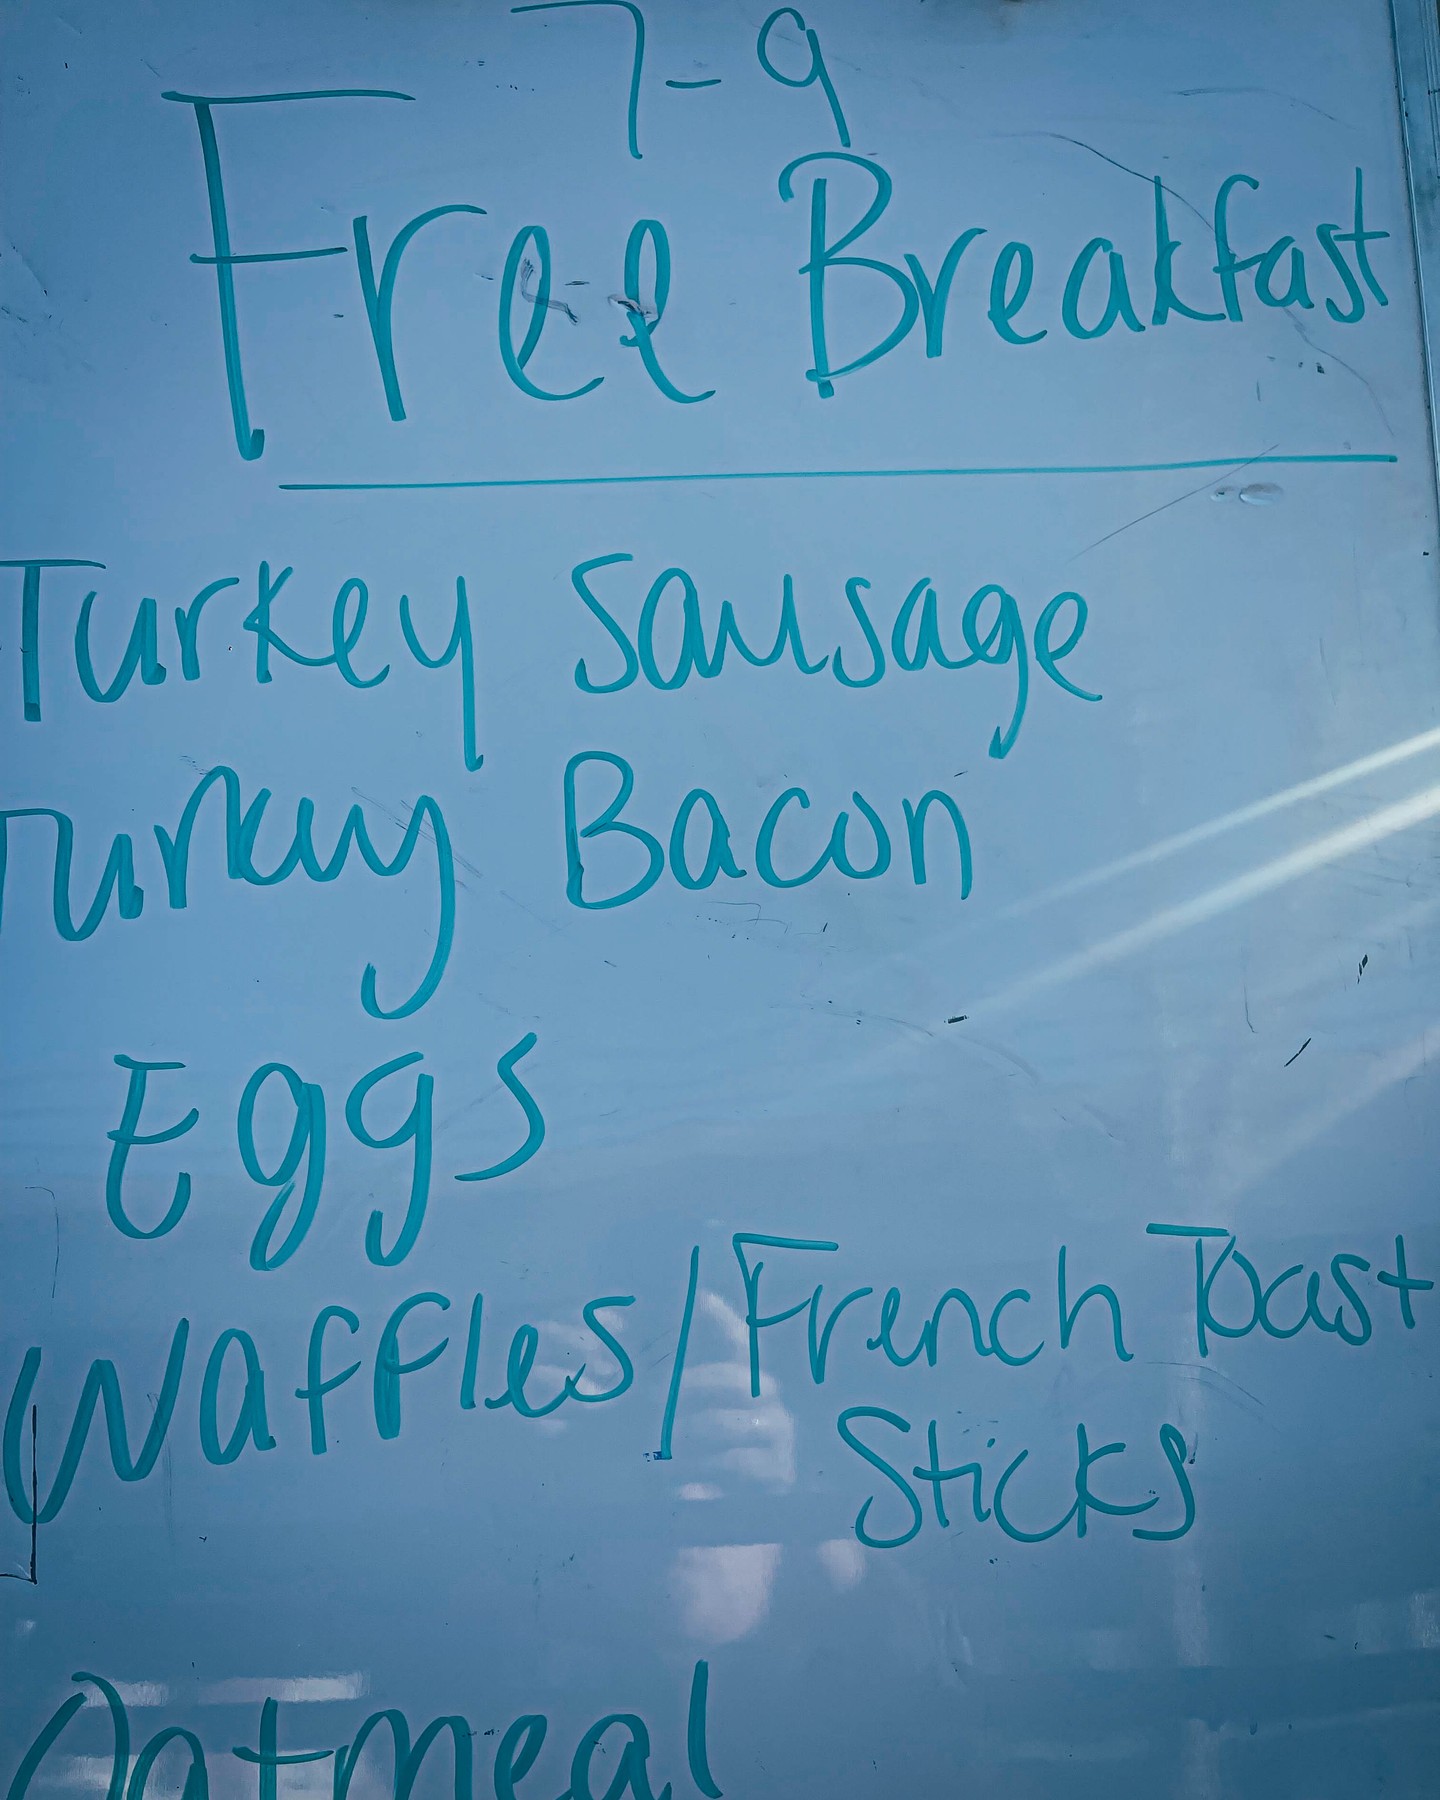 7-9
Free Breakfast
Turkey Sausage
Turkey Bacon
Eggs
Waffles/French Toast
Sticks
Oatmeal